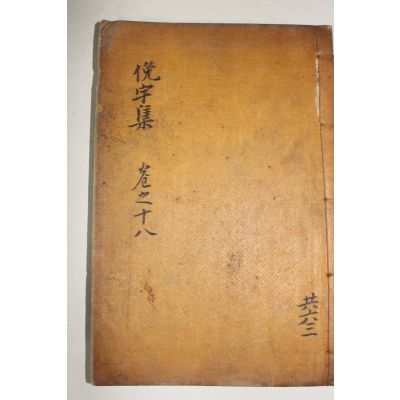 俛宇集
卷之十八
共六三